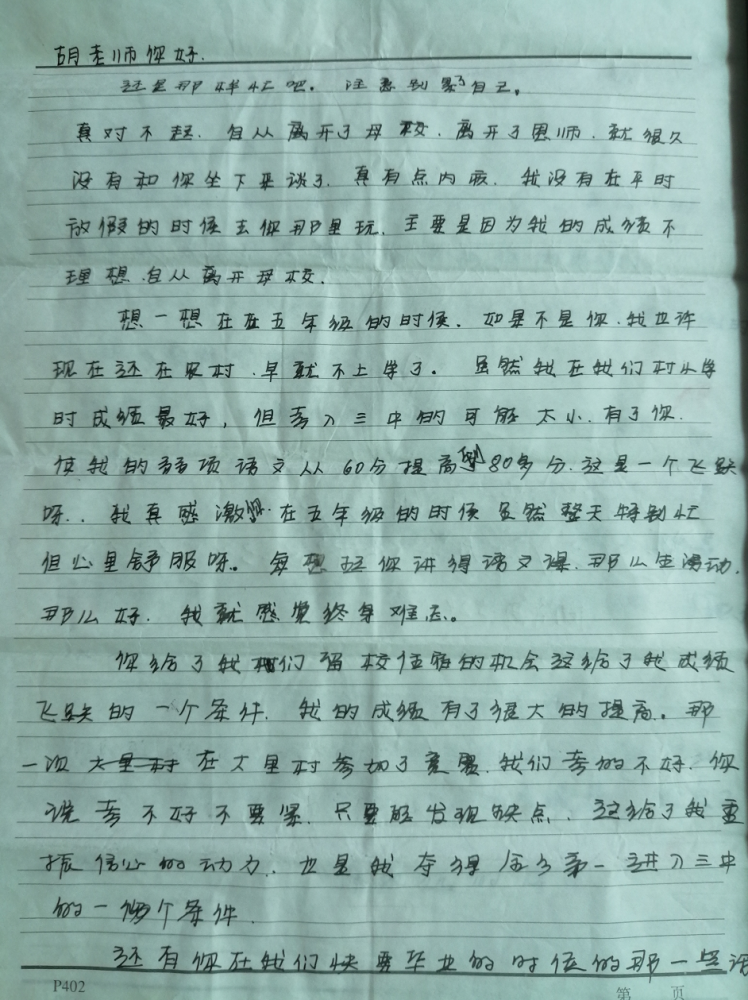 胡老师你好.
还是那样忙吧。注意别累了自己。
真对不起.自从离开了母校.离开了恩师.就很久
没有和你坐下来谈了.真有点内疚.我没有在平时
放假的时候去你那里玩.主要是因为我的成绩不
理想.自从离开母校.
想一想在在五年级的时候.如果不是你.我也许
现在还在农村.早就不上学了。虽然我在我们村小学
时成绩最好,但考入三中的可能太小.有了你.
使我的弱项语文从60分提高到80多分.这是一个飞跃
呀..我真感激你.在五年级的时候虽然整天特别忙
但心里舒服呀。每想起你讲得语文课.那么生动.
那么好.我就感觉终身难忘。
你给了我们留校住宿的机会这给了我成绩
飞跃的一个条件.我的成绩有了很大的提高。那
一次大里村在大里村参加了竞赛.我们考的不好.你
说考不好不要紧.只要能发现缺点.这给了我重
振信心的动力.也是我夺得全乡第一进入三中
的一个条件.
还有你在我们快要毕业的时候的那一些话
P402
第 页